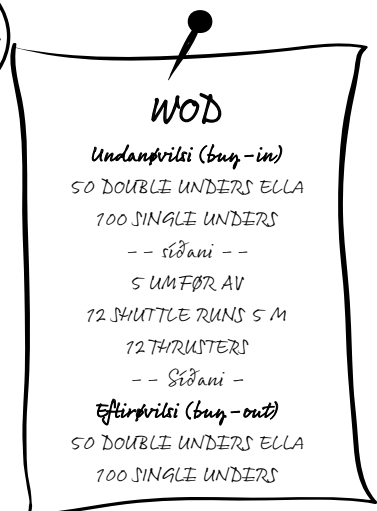 WOD
Undanøvilsi (buy-in)
50 DOUBLE UNDERS ELLA
100 SINGLE UNDERS
-- síðani --
5 UMFØR AV
12 SHUTTLE RUNS 5 M
12 THRUSTERS
-- Síðani -
Eftirøvilsi (buy-out)
50 DOUBLE UNDERS ELLA
100 SINGLE UNDERS